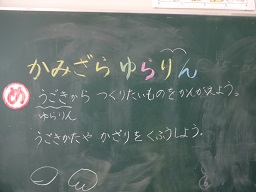 かみざら ゆらりん
め うごきから つくりたいものをかんがえよう。
ゆらりん
うごきかたや かざりをくふうしよう.